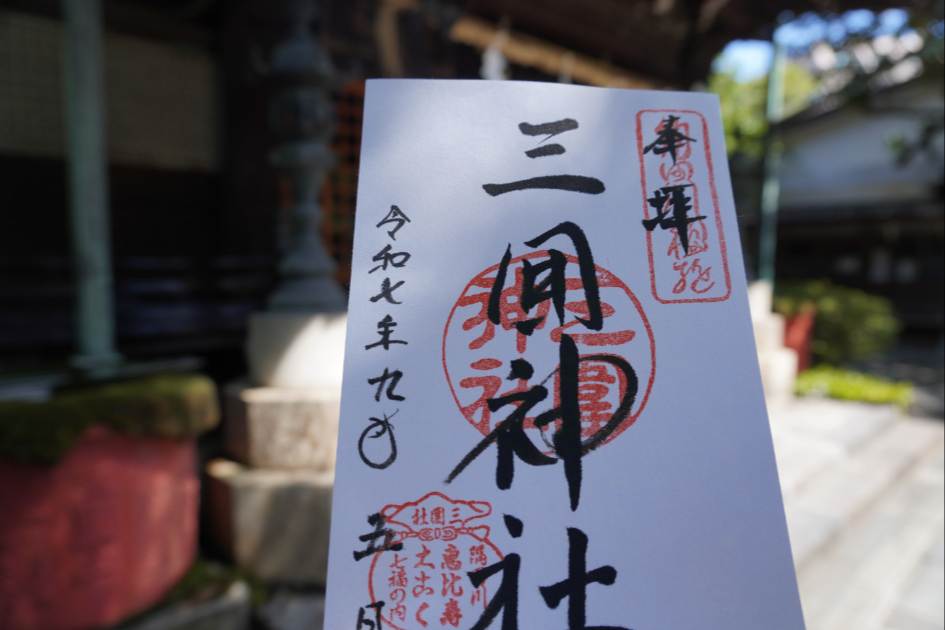 奉拝
三囲神社
令和七年九月五日
三囲
神社
三囲社
隅川
恵比寿
大こく
七福の内